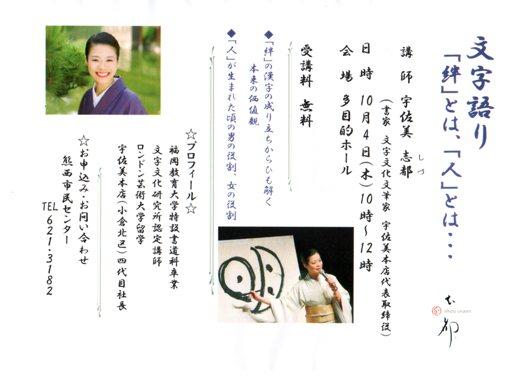 文字語り
「絆」とは、「人」とは・・・
講師 宇佐美 志都
しづ
(書家 文字文化文筆家 宇佐美本店代表取締役)
日時 10月4日(木)10時～12時
会場 多目的ホール
受講料 無料
◆「絆」の漢字の成り立ちからひも解く
本来の価値観
◆「人」が生まれた頃の男の役割、女の役割
☆プロフィール☆
福岡教育大学特設書道科卒業
文字文化研究所認定講師
ロンドン芸術大学留学
宇佐美本店(小倉北区)四代目社長
☆お申込み・お問い合わせ
熊西市民センター
TEL 621-3182
志都